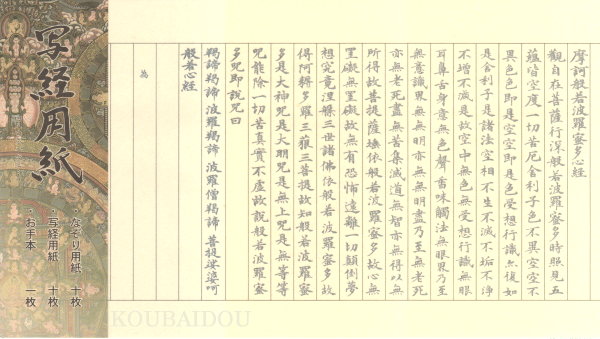 摩訶般若波羅蜜多心經
觀自在菩薩行深般若波羅蜜多時照見五
蘊皆空度一切苦厄舍利子色不異空空不
異色色即是空空即是色受想行識亦復如
是舍利子是諸法空相不生不滅不垢不淨
不增不減是故空中無色無受想行識無眼
耳鼻舌身意無色聲香味觸法無眼界乃至
無意識界無無明亦無無明盡乃至無老死
亦無老死盡無苦集滅道無智亦無得以無
所得故菩提薩埵依般若波羅蜜多故心無
罣礙無罣礙故無有恐怖遠離一切顛倒夢
想究竟涅槃三世諸佛依般若波羅蜜多故
得阿耨多羅三藐三菩提故知般若波羅蜜
多是大神咒是大明咒是無上咒是無等等
咒能除一切苦真實不虛故說般若波羅蜜
多咒即說咒曰
羯諦羯諦 波羅羯諦 波羅僧羯諦 菩提娑婆呵
般若心経
為
写経用紙
・なぞり用紙 十枚
・写経用紙 十枚
・お手本 一枚
KOUBAIDOU